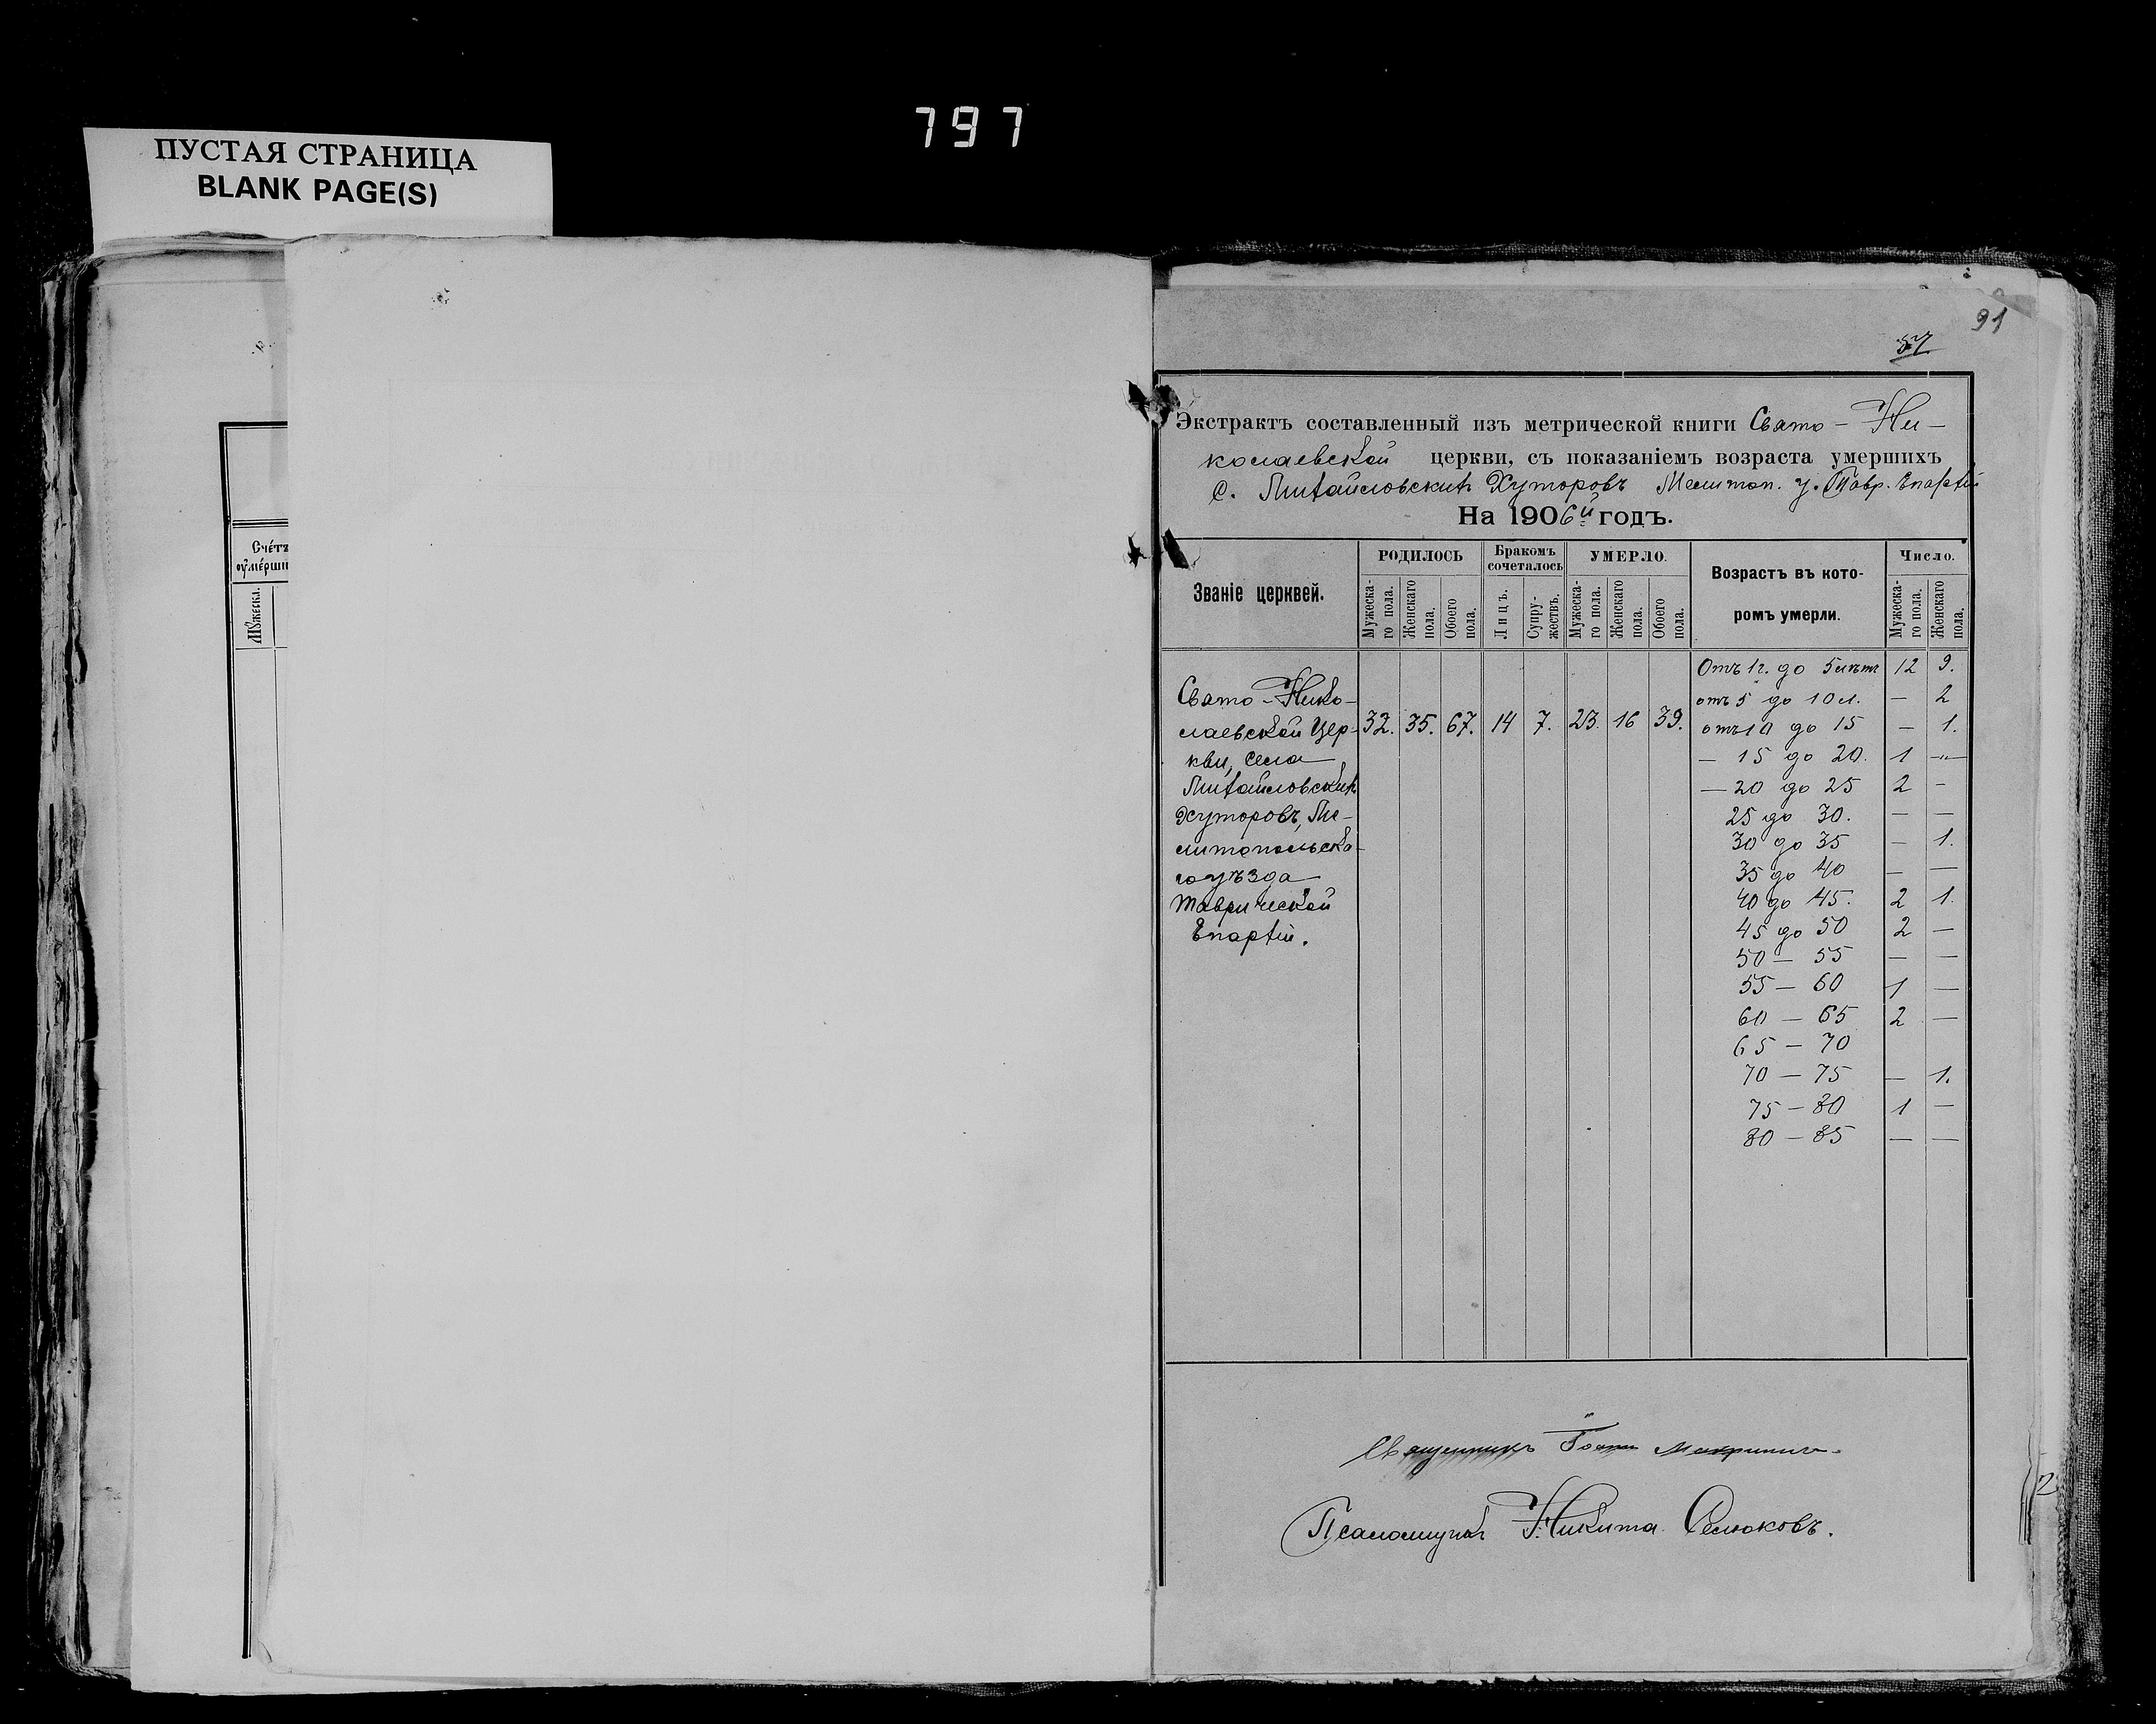 797
ПУСТАЯ СТРАНИЦА
BLANK PAGE(S)
Счéтъ
оумéрши
Мꙋжескл.
91
57
Экстрактъ составленный изъ метрической книги Свято - Ни-
колаевской церкви, съ показаніемъ возраста умершихъ
с. Михайловскихъ Хуторовъ Мелитоп. у. Тавр. Епархіи
На 1906й годъ.
Званіе церквей.
РОДИЛОСЬ
Мужеска-
го пола.
Женскаго
пола.
Обоего
пола.
Бракомъ
сочеталось
Лицъ.
Супру-
жествъ.
УМЕРЛО.
Мужеска-
го пола.
Женскаго
пола.
Обоего
пола.
Возрастъ въ кото-
ромъ умерли.
Число.
Мужеска-
го пола.
Женскаго
пола.
Свято-Нико-
лаевской Цер- 32. 35. 67. 14 7. 23. 16 39.
кви, села
Михайловскихъ
Хуторовъ, Ме-
литопольска-
го уѣзда
Таврической
Епархіи.
Отъ 1 г. до 5 лѣтъ 12 9.
отъ 5 до 10 л. — 2
отъ 10 до 15 — 1.
— 15 до 20. 1 —"—
— 20 до 25 2 -
25 до 30. — —
30 до 35 — 1.
35 до 40 — —
40 до 45. 2 1.
45 до 50 2 —
50 — 55 — —
55 — 60 1 —
60 — 65 2 —
65 — 70
70 — 75 — 1.
75 — 80 1 —
80 — 85 — —
Священникъ Іоаннъ
Псаломщикъ Никита Селюковъ.
2